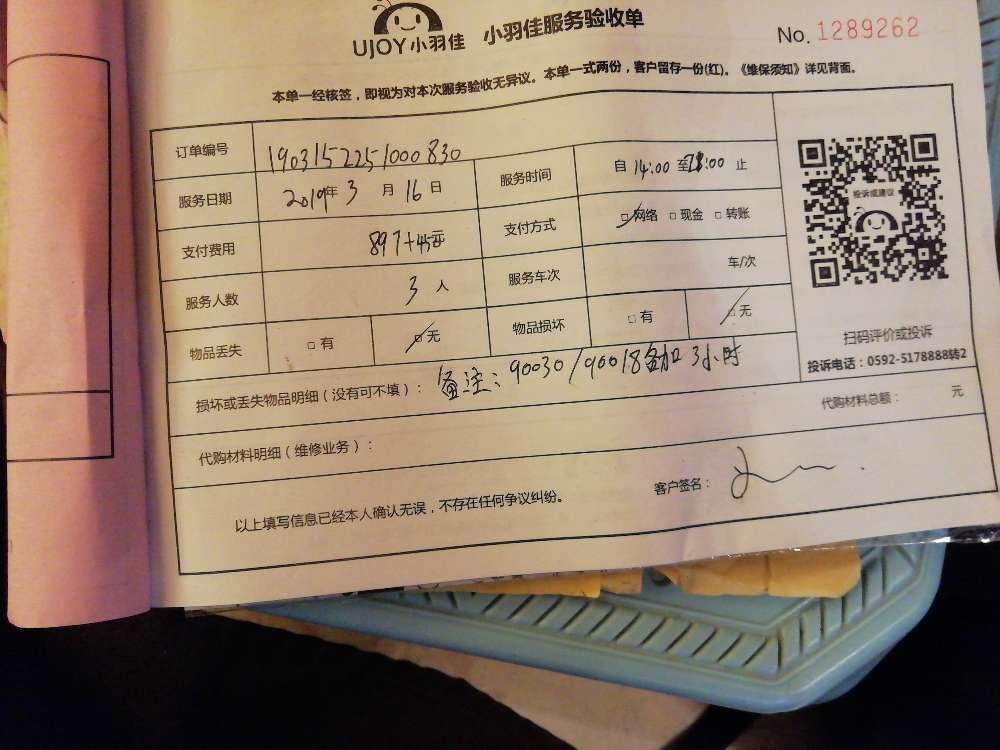 UJOY小羽佳 小羽佳服务验收单
No. 1289262
本单一经核签，即视为对本次服务验收无异议。本单一式两份，客户留存一份(红)。《维保须知》详见背面。
订单编号 1903152251000830
服务日期 2019年 3 月 16 日 服务时间 自 14:00 至 :00 止
支付费用 897+45元 支付方式 □ 网络 □ 现金 □ 转账
服务人数 3 人 服务车次 车/次
物品丢失 □ 有 □ 无 物品损坏 □ 有 □ 无
投诉或建议
扫码评价或投诉
投诉电话：0592-5178888转2
损坏或丢失物品明细（没有可不填）： 备注：90030/90018各加3小时
代购材料明细（维修业务）： 代购材料总额： 元
以上填写信息已经本人确认无误，不存在任何争议纠纷。 客户签名：